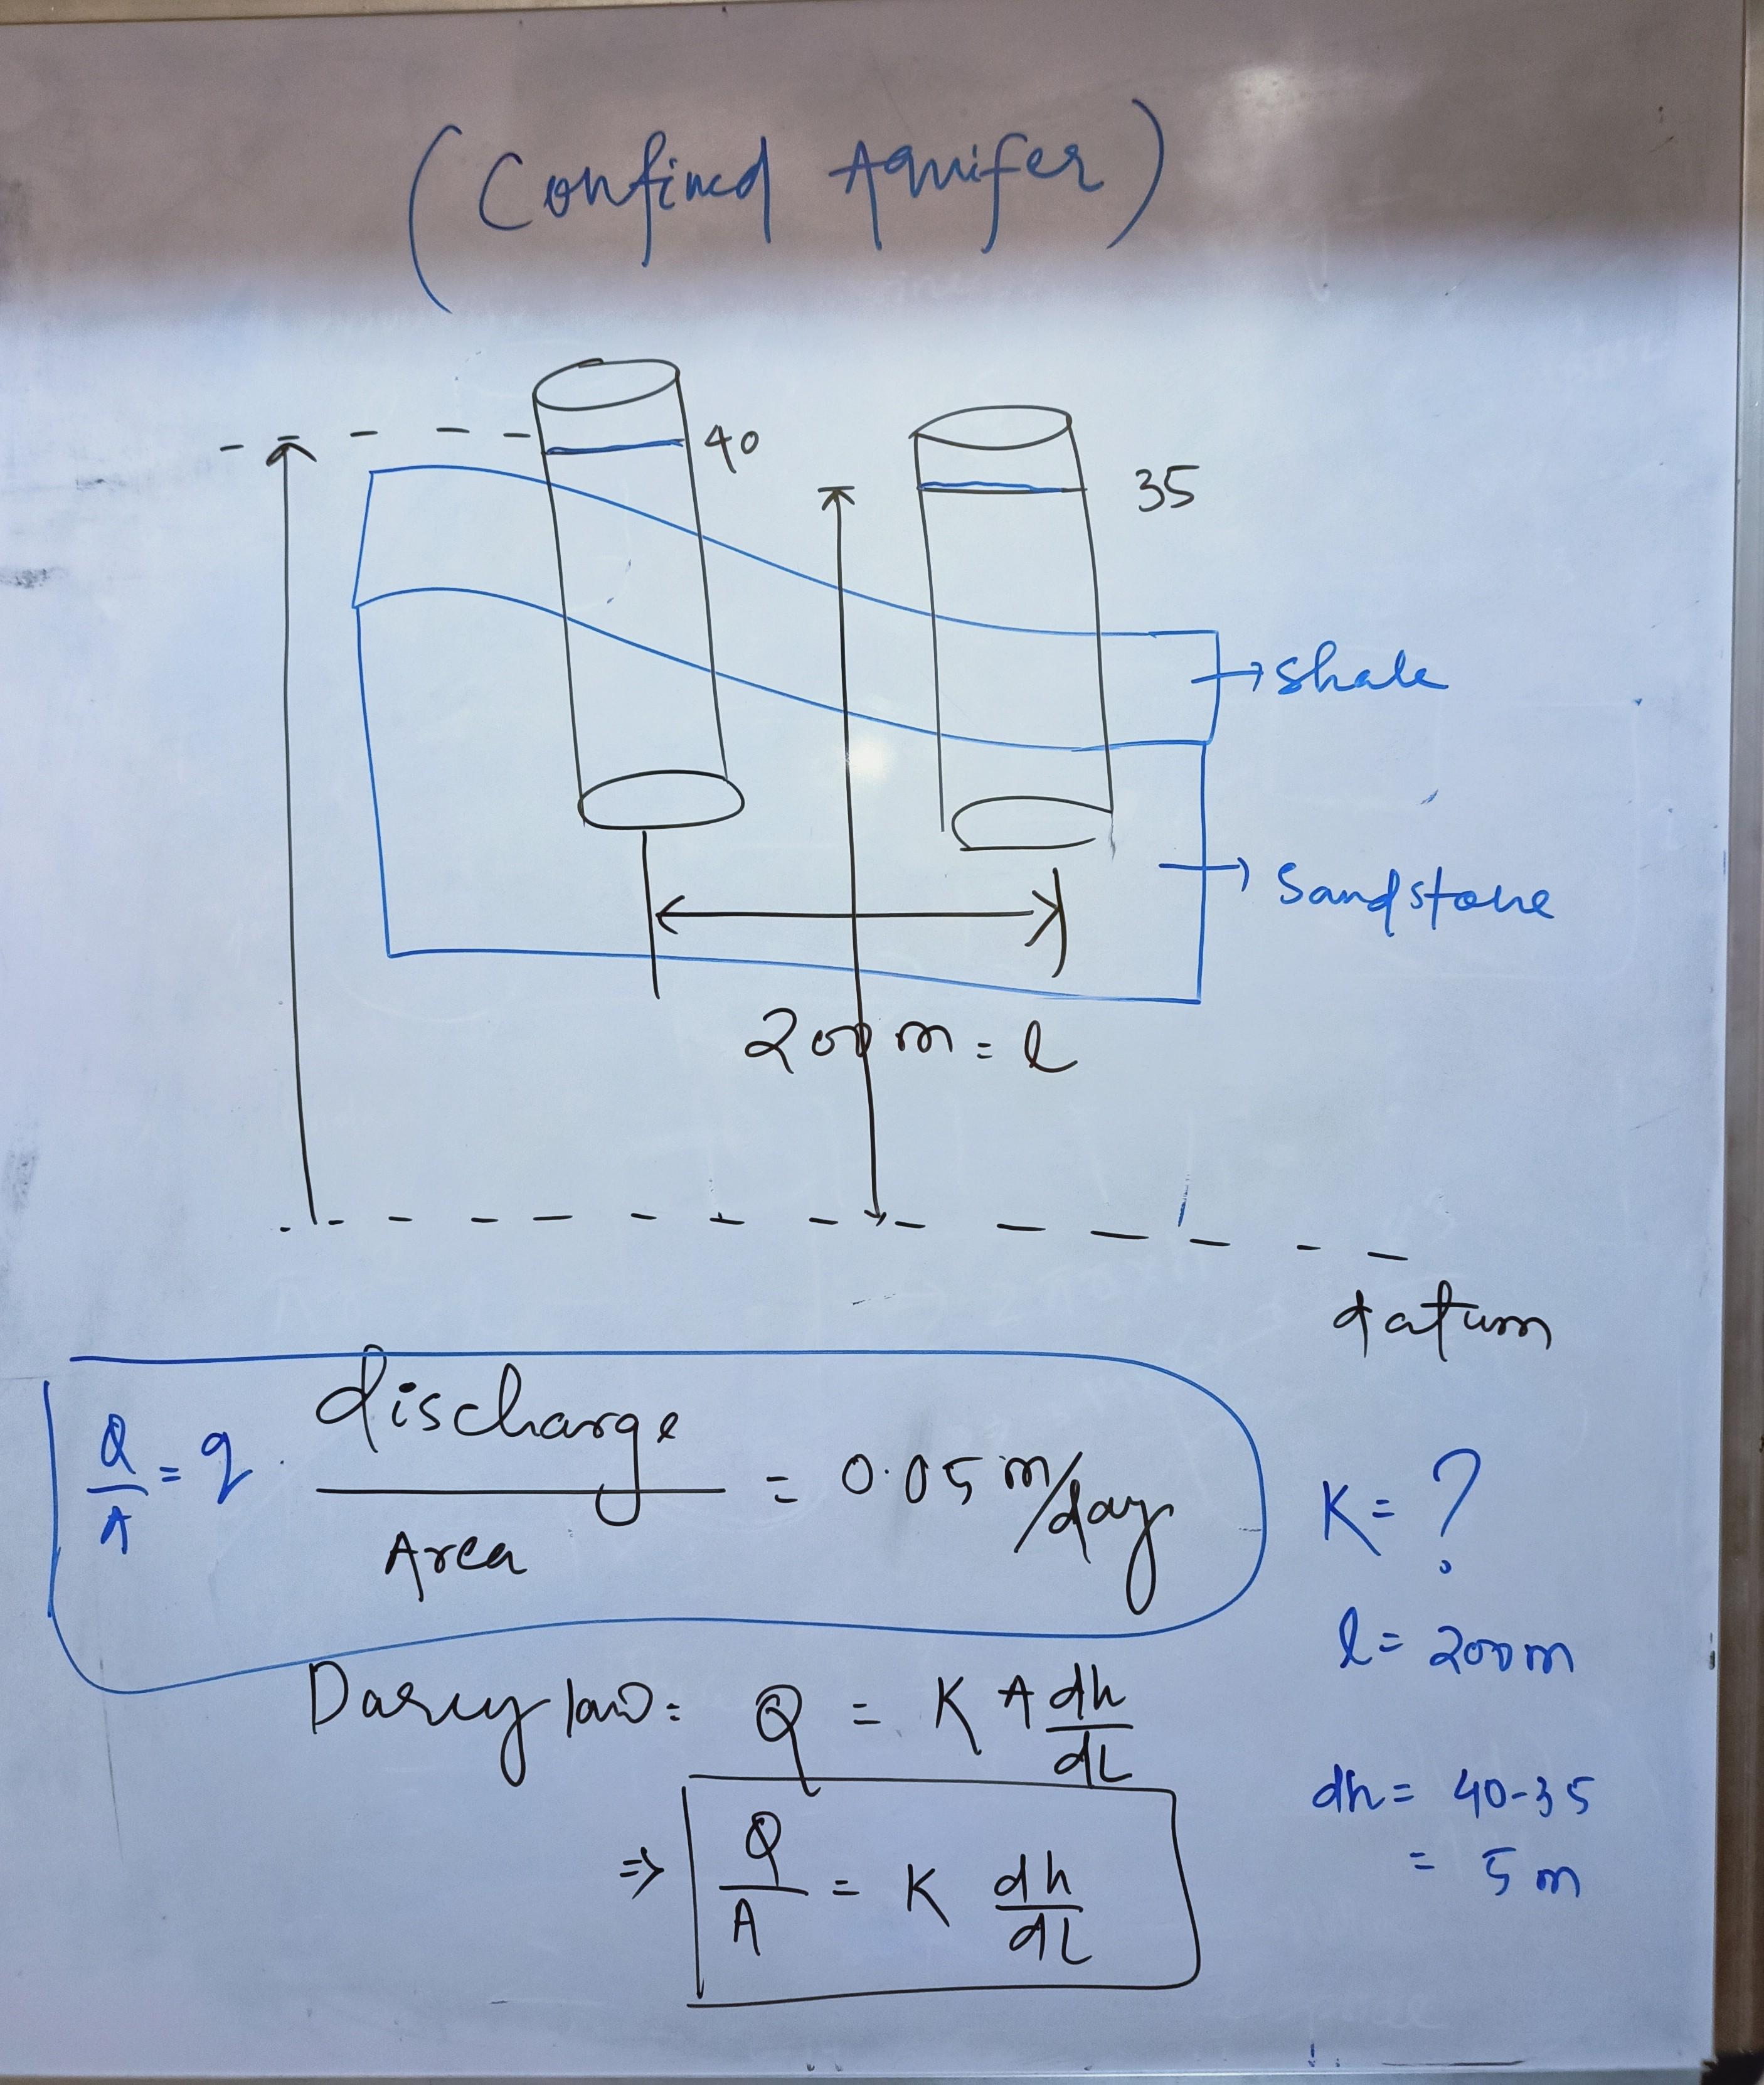 (Confined Aquifer)
40
35
Shale
Sandstone
200 m = l
datum
Q/A = q discharge/Area = 0.05 m/day
K = ?
l = 200m
Darcy law: Q = K A dh/dL
dh = 40-35
= 5 m
⇒ Q/A = K dh/dL